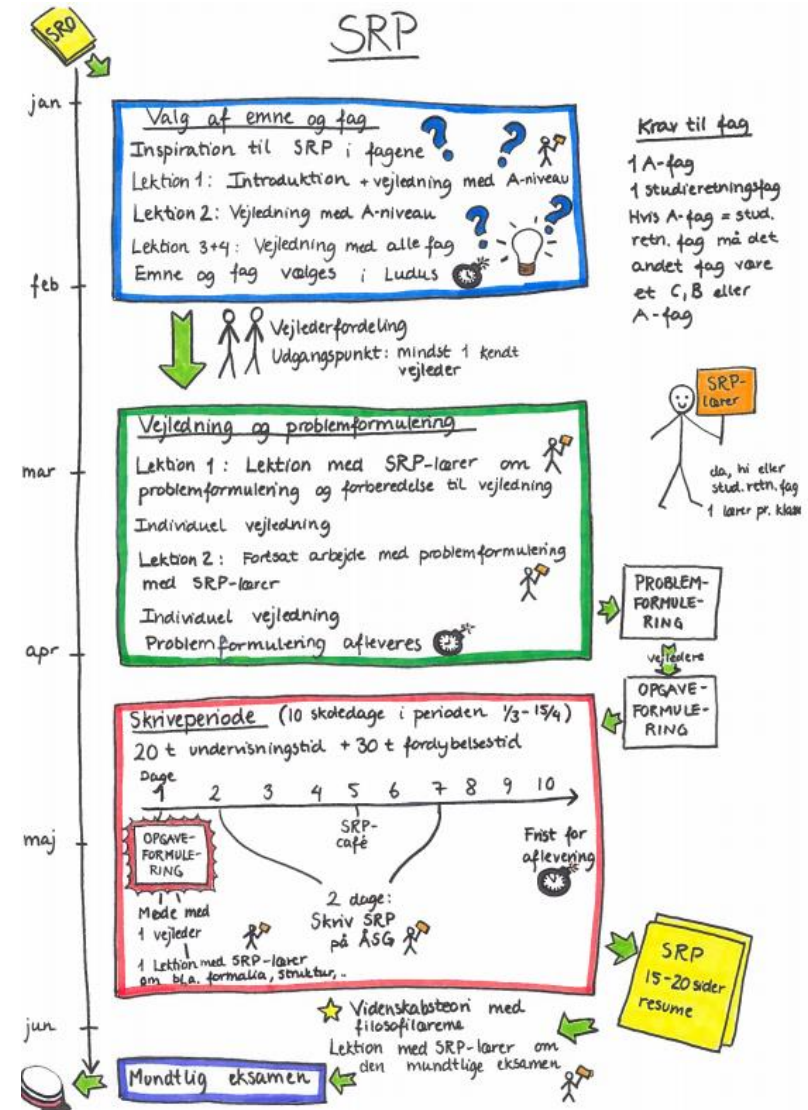 SRO
SRP
jan
feb
mar
apr
maj
jun
Valg af emne og fag
Inspiration til SRP i fagene
Lektion 1: Introduktion + vejledning med A-niveau
Lektion 2: Vejledning med A-niveau
Lektion 3+4: Vejledning med alle fag
Emne og fag vælges i Ludus
Krav til fag
1 A-fag
1 studieretningsfag
Hvis A-fag = stud.
retn. fag må det
andet fag være
et C, B eller
A-fag
Vejlederfordeling
Udgangspunkt: mindst 1 kendt
vejleder
SRP-
lærer
da, hi eller
stud.retn.fag
1 lærer pr. klasse
Vejledning og problemformulering
Lektion 1: Lektion med SRP-lærer om
problemformulering og forberedelse til vejledning
Individuel vejledning
Lektion 2: Fortsat arbejde med problemformulering
med SRP-lærer
Individuel vejledning
Problemformulering afleveres
PROBLEM-
FORMULE-
RING
vejledere
OPGAVE-
FORMULE-
RING
Skriveperiode (10 skoledage i perioden 1/3-15/4)
20 t undervisningstid + 30 t fordybelsestid
Dage
1 2 3 4 5 6 7 8 9 10
OPGAVE-
FORMULE-
RING
SRP-
café
Frist for
aflevering
Møde med
1 vejleder
2 dage:
Skriv SRP
på ÅSG
1 Lektion med SRP-lærer
om bl.a. formalia, struktur,..
SRP
15-20 sider
resume
Videnskabsteori med
filosofilærerne
Lektion med SRP-lærer om
den mundtlige eksamen
Mundtlig eksamen